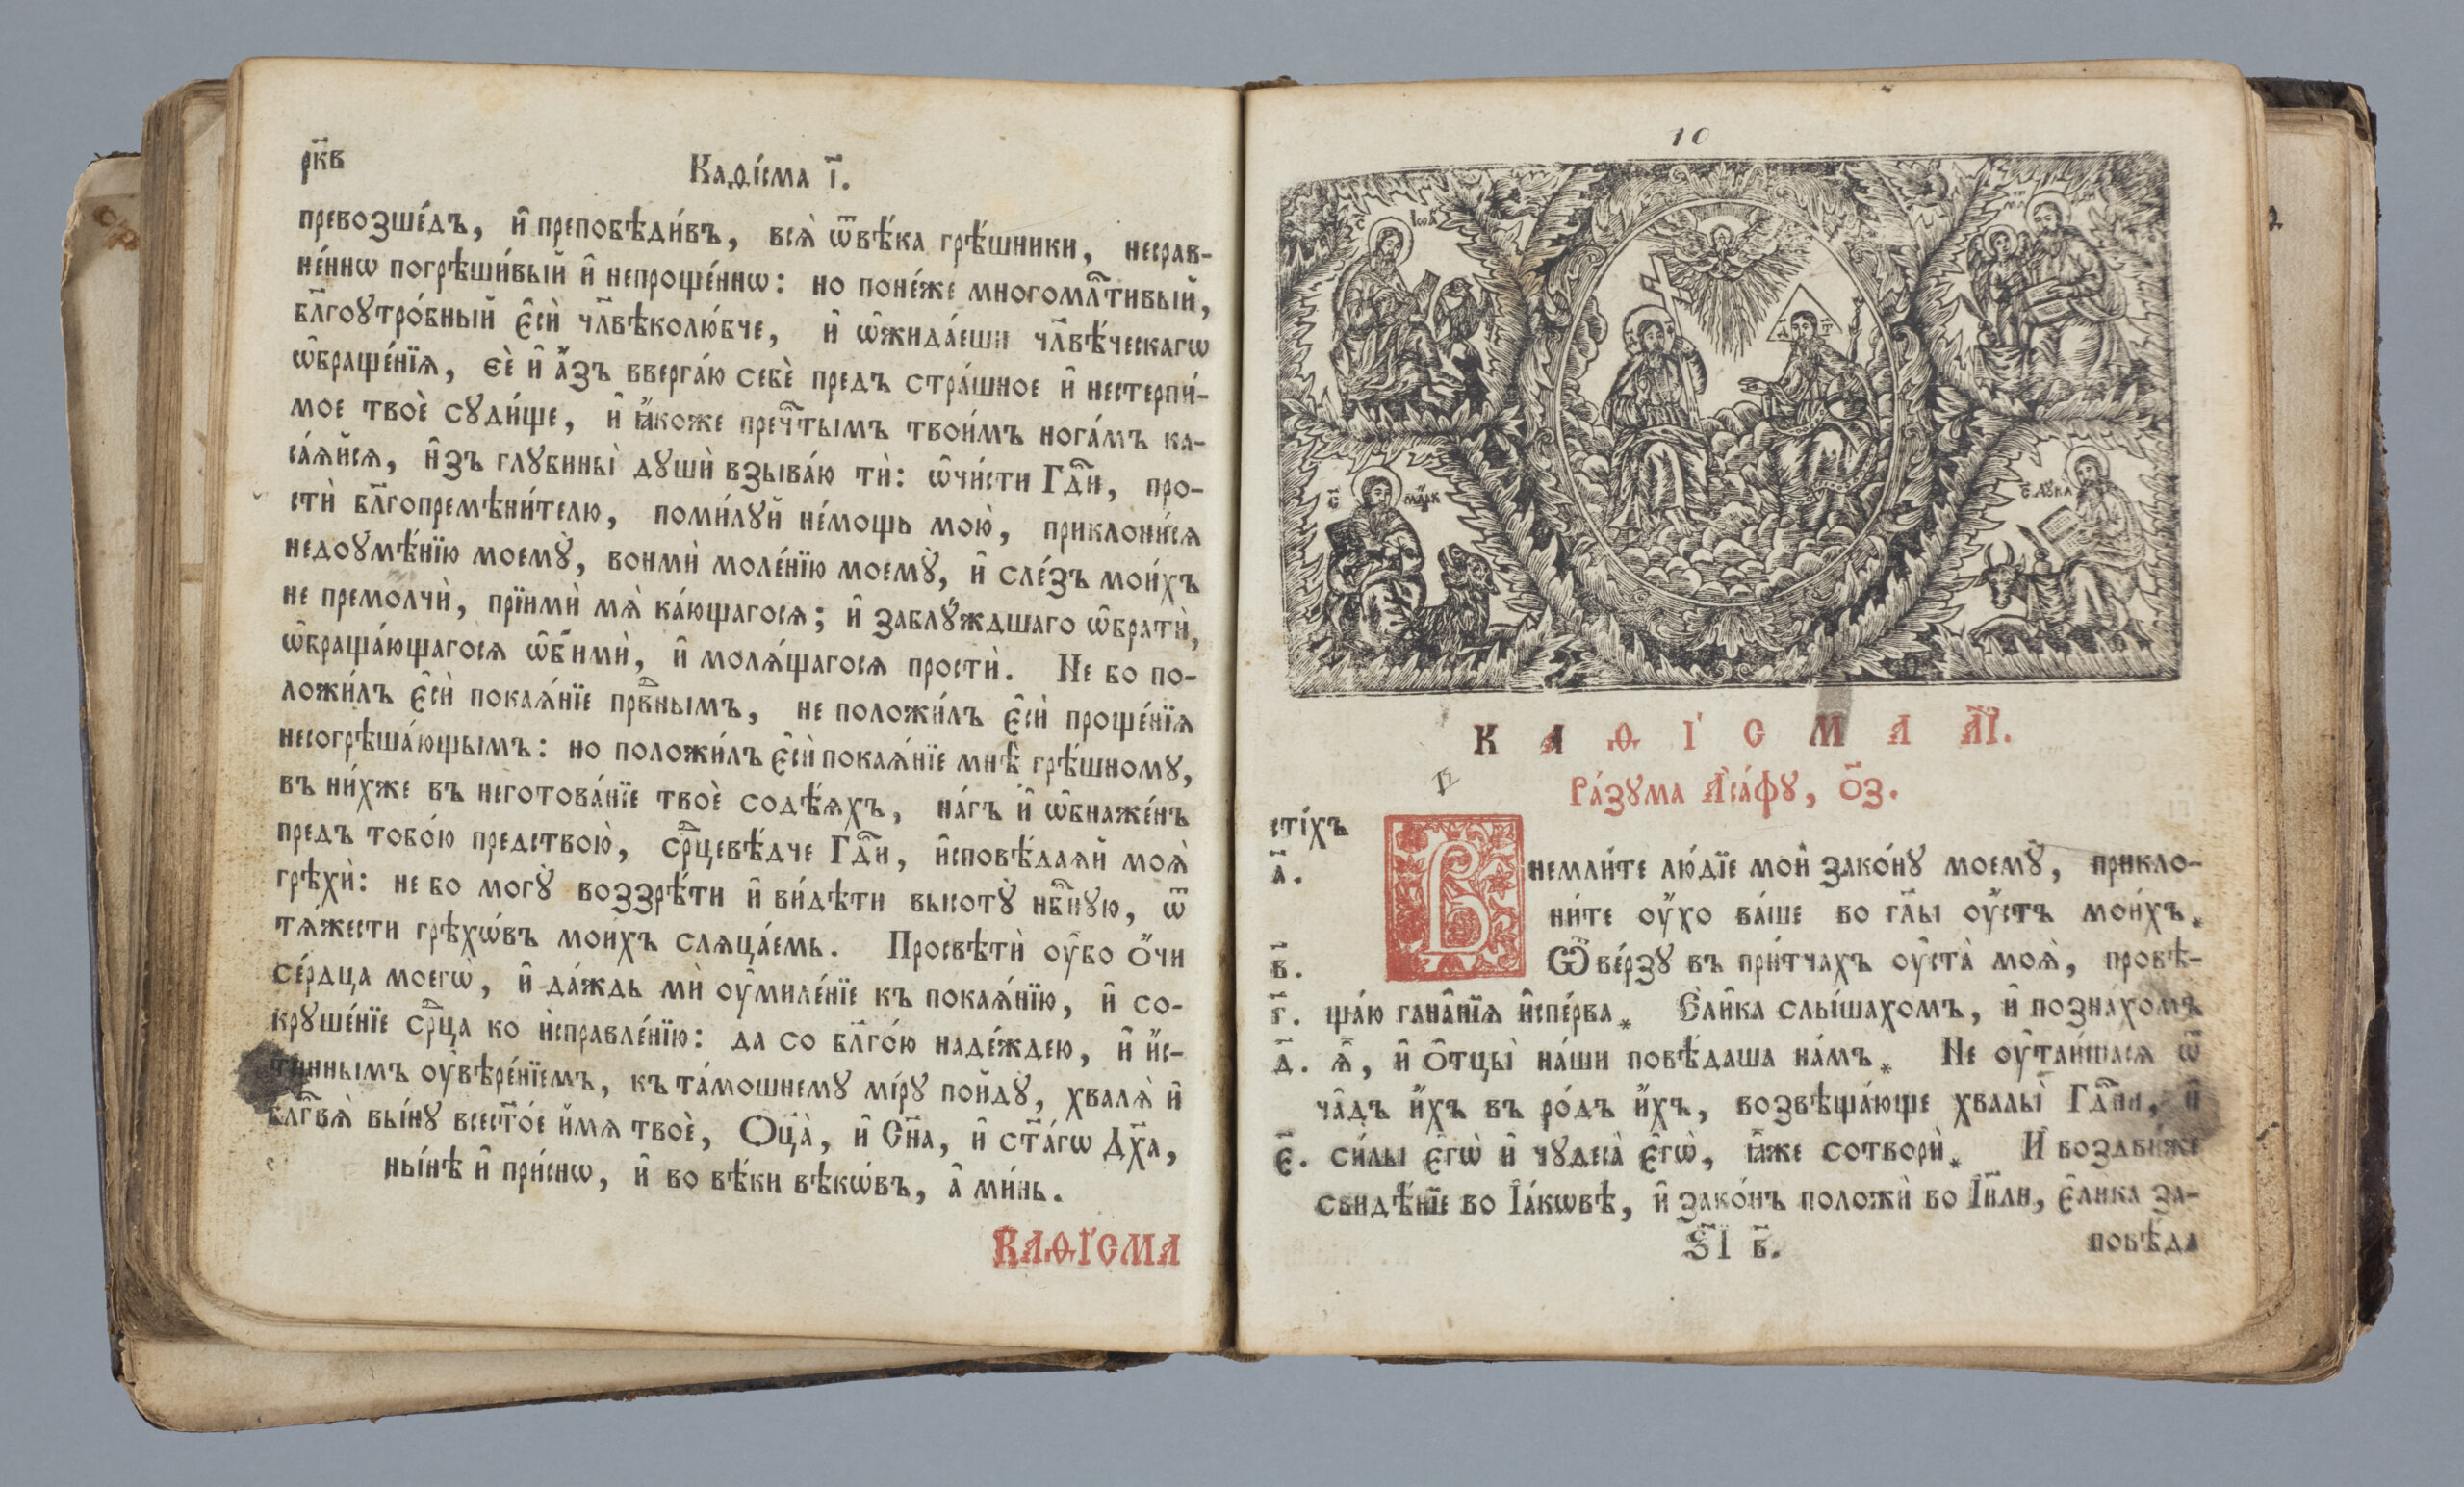 рк҃в
Каѳі́сма і҃.
превозше́дъ, и҆ преповѣди́въ, всѧ̀ ѿвѣ́ка грѣ́шники, несрав-
не́ннѡ погрѣши́вый и҆ непроще́ннѡ: но поне́же многомлⷭ҇тивый,
бл҃гоꙋтро́бный є҆сѝ чл҃вѣколю́бче, и҆ ѡ҆жида́еши чл҃вѣ́ческагѡ
ѡ҆браще́нїѧ, сѐ и҆ а҆́зъ вверга́ю себѐ предъ стра́шное и҆ нестерпи́-
мое твоѐ сꙋди́ще, и҆ ꙗ҆́коже пречⷭ҇тымъ твои́мъ нога́мъ ка-
са́ѧйсѧ, и҆́зъ глꙋбины̀ дꙋшѝ взыва́ю тѝ: ѡ҆чи́сти Гдⷭ҇и, про-
стѝ бл҃гопремѣни́телю, поми́лꙋй не́мощь мою̀, приклони́сѧ
недоꙋмѣ́нїю моемꙋ̀, вонмѝ моле́нїю моемꙋ̀, и҆ сле́зъ мои́хъ
не премолчѝ, прїимѝ мѧ̀ ка́ющагосѧ; и҆ заблꙋ́ждшаго ѡ҆братѝ,
ѡ҆браща́ющагосѧ ѡ҆б̾имѝ, и҆ молѧ́щагосѧ простѝ. Не бо по-
ложи́лъ є҆сѝ покаѧ́нїе првⷣнымъ, не положи́лъ є҆сѝ проще́нїѧ
несогрѣша́ющымъ: но положи́лъ є҆сѝ покаѧ́нїе мнѣ̀ грѣ́шномꙋ,
въ ни́хже въ неготова́нїе твоѐ содѣ́ѧхъ, на́гъ и҆ ѡ҆бнаже́нъ
предъ тобо́ю предстою̀, срⷣцевѣ́дче Гдⷭ҇и, и҆сповѣ́даѧй моѧ̀
грѣхѝ: не бо могꙋ̀ воззрѣ́ти и҆ ви́дѣти высотꙋ̀ нбⷭ҇нꙋю, ѿ
тѧ́жести грѣхѡ́въ мои́хъ слѧца́емь. Просвѣтѝ оу҆́бо ѻ҆́чи
се́рдца моегѡ̀, и҆ да́ждь мѝ оу҆миле́нїе къ покаѧ́нїю, и҆ со-
крꙋше́нїе срⷣца ко и҆справле́нїю: да со бл҃го́ю наде́ждею, и҆ и҆́с-
тиннымъ оу҆вѣре́нїемъ, къ та́мошнемꙋ мі́рꙋ пойдꙋ̀, хвалѧ̀ и҆
блгⷭ҇вѧ̀ вы́нꙋ всест҃о́е и҆́мѧ твоѐ, Ѻц҃а̀, и҆ Сн҃а, и҆ ст҃а́гѡ Дх҃а,
ны́нѣ и҆ при́снѡ, и҆ во вѣ́ки вѣкѡ́въ, а҆ ми́нь.
КАѲІ́СМА
10
С Іѡа́
С҃ Ма́рк
С҃. Лꙋка
К А Ѳ І́ С М А А҃І.
Ра́зꙋма А҆са́фꙋ, о҃з.
сті́хъ
а҃. Внемли́те лю́дїе мои̑ зако́нꙋ моемꙋ̀, прикло-
ни́те оу҆́хо ва́ше во гл҃ы оу҆́стъ мои́хъ.
в҃. Ѿве́рзꙋ въ при́тчахъ оу҆ста̀ моѧ̀, провѣ-
г҃. ща́ю гана̑нїѧ и҆спе́рва. Є҆ли̑ка слы́шахомъ, и҆ позна́хомъ
д҃. ѧ҆̀, и҆ ѻ҆тцы̀ на́ши повѣ́даша на́мъ. Не оу҆таи́шасѧ ѿ
ча̑дъ и҆́хъ въ ро́дъ и҆́хъ, возвѣща́юще хвалы̀ Гдⷭ҇ни, и҆
є҃. си́лы є҆гѡ̀ и҆ чꙋдеса̀ є҆гѡ̀, ꙗ҆̀же сотворѝ. И҆ воздви́же
свидѣ́нїе во І҆а́кѡвѣ, и҆ зако́нъ положѝ во І҆и҃ли, є҆ли̑ка за-
ѕ҃і в҃.
повѣ́да